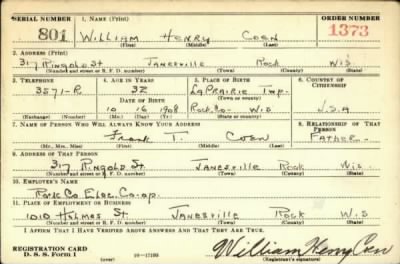 SERIAL NUMBER 1. NAME (Print) ORDER NUMBER
801 William Henry Coen 1373
(First) (Middle) (Last)
2. ADDRESS (Print)
317 Ringold St Janesville Rock Wis
(Number and street or R. F. D. number) (Town) (County) (State)
3. TELEPHONE 4. AGE IN YEARS 5. PLACE OF BIRTH 6. COUNTRY OF CITIZENSHIP
3571-R. 32 LaPrairie Twp.
DATE OF BIRTH (Town or county)
10 16 1908 Rock Co Wis U.S.A
(Exchange) (Number) (Mo.) (Day) (Yr.) (State or country)
7. NAME OF PERSON WHO WILL ALWAYS KNOW YOUR ADDRESS 8. RELATIONSHIP OF THAT PERSON
Frank T. Coen Father
(Mr., Mrs., Miss) (First) (Middle) (Last)
9. ADDRESS OF THAT PERSON
317 Ringold St. Janesville Rock Wis
(Number and street or R. F. D. number) (Town) (County) (State)
10. EMPLOYER'S NAME
Rock Co Elec. Co-op.
11. PLACE OF EMPLOYMENT OR BUSINESS
1010 Holmes St Janesville Rock Wis
(Number and street or R. F. D. number) (Town) (County) (State)
I AFFIRM THAT I HAVE VERIFIED ABOVE ANSWERS AND THAT THEY ARE TRUE.
REGISTRATION CARD William Henry Coen
D. S. S. Form 1 (over) 16-17105 (Registrant's signature)